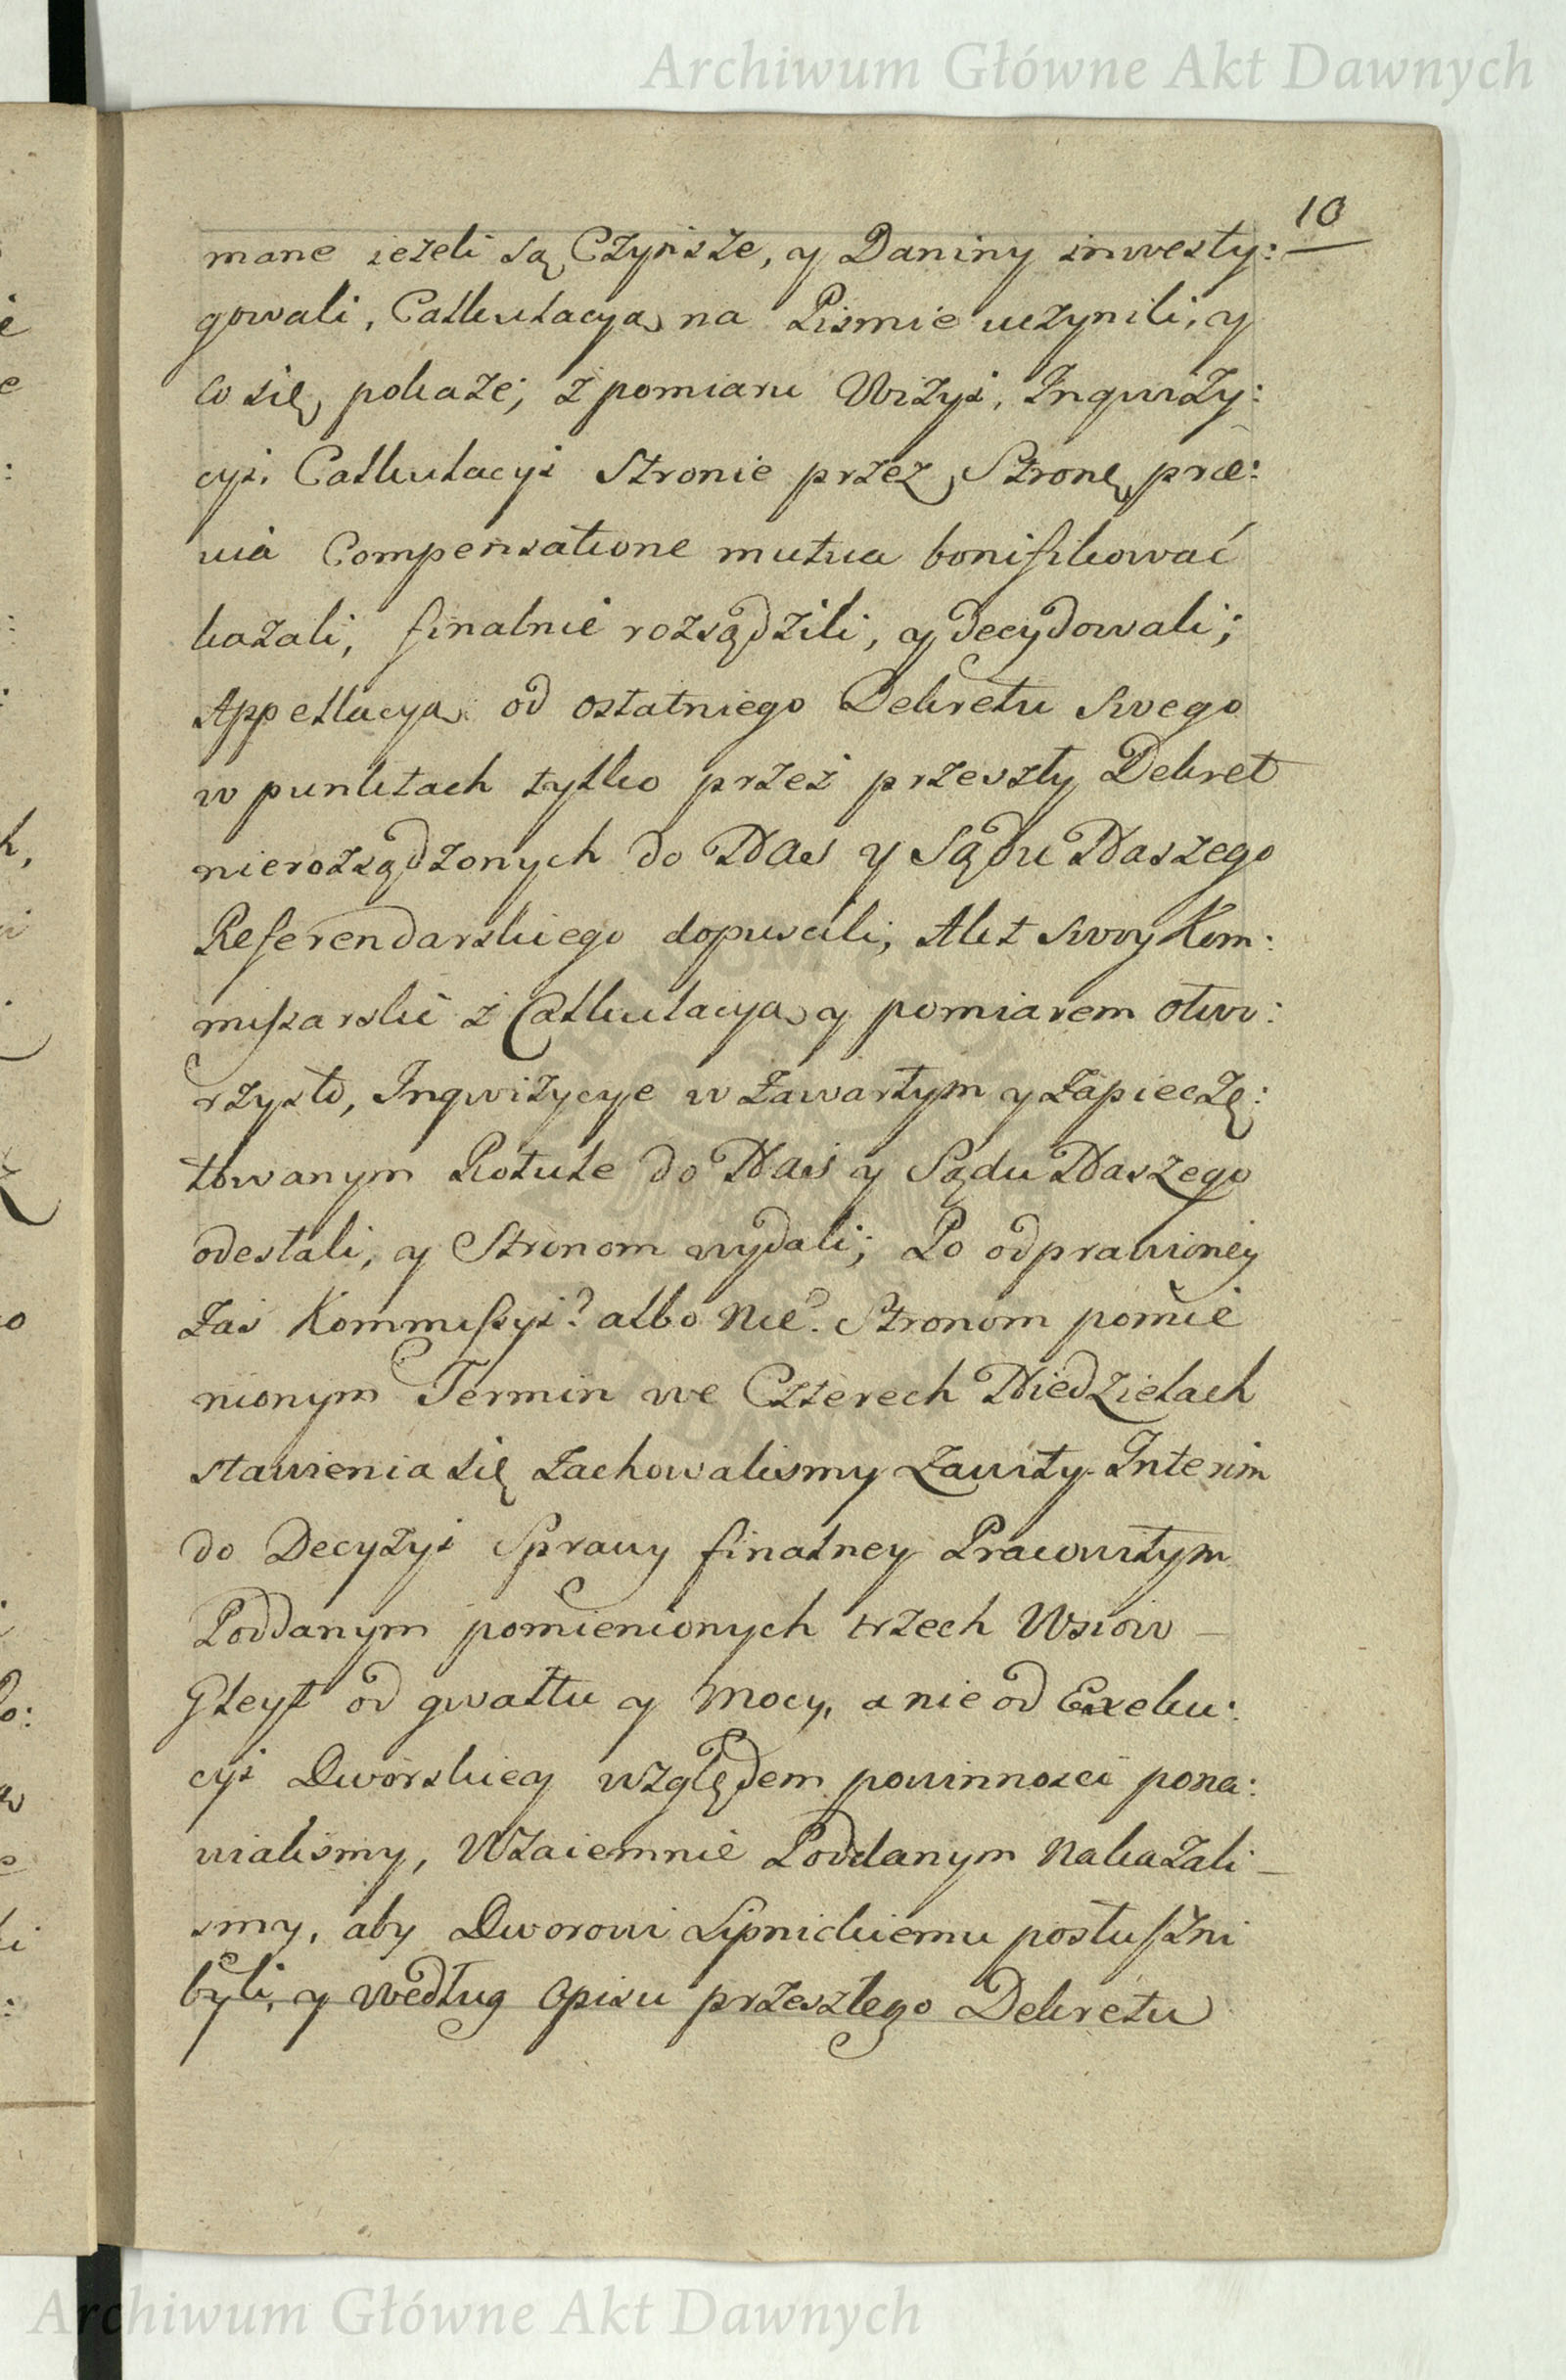 Archiwum Główne Akt Dawnych
10
mane ieżeli są Czynsze, y Daniny inwesty:
gowali, Calkulacyą na Pismie uczynili, y
co się pokaże, z pomiaru Wizyi, Inqwizy:
cyi, Calkulacyi Stronie przez Stronę præ:
via Compensatione mutua bonifikować
kazali, finalnie rozsądzili, y decydowali;
Appellacyą od ostatniego Dekretu swego
w punktach tylko przez przeszły Dekret
nierozsądzonych do Nas y Sądu Naszego
Referendarskiego dopuścili, Akt swoy Kom:
missarski z Calkulacyą y pomiarem otwo:
rzysto, Inqwizycye w zawartym y zapieczę:
towanym Rotule do Nas y Sądu Naszego
odesłali, y Stronom wydali; Po odprawioney
zas Kommissyi? albo nie? Stronom pomie
nionym Termin we Czterech Niedzielach
stawienia się zachowalismy zawity. Interim
do Decyzyi Sprawy finalney Pracowitym
Poddanym pomienionych trzech Wsiow
Gleyt od gwałtu y mocy, a nie od Exeku:
cyi Dworskiey względem powinnosci pona:
wialismy, Wzaiemnie Poddanym nakazali
smy, aby Dworowi Lipnickiemu posłuszni
byli, y według opisu przeszłego Dekretu
Archiwum Główne Akt Dawnych